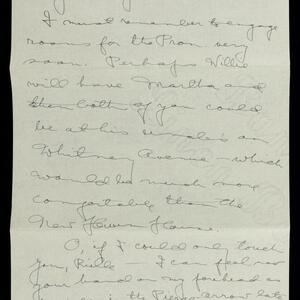 I must remember to engage
rooms for the Prom very
soon. Perhaps Willie
will have Martha and
then both of you could
be at his uncle's on
Whitney Avenue – which
would be much more
comfortable than the
New Haven House.
O, if I could only touch
you, – I can feel now
your hand on my forehead as
in the Pierce-Arrow late